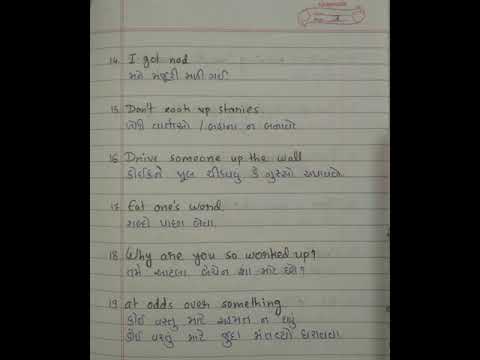 14. I got nod
મને મંજૂરી મળી ગઈ
15. Don't cook up stories
ખોટી વાર્તાઓ / બહાના ન બનાવો
16. Drive someone up the wall
કોઈકને ખૂબ ચીડવવું કે ગુસ્સો અપાવવો.
17. Eat one's word
શબ્દો પાછા લેવા.
18. Why are you so worked up?
તમે આટલા બેચેન શા માટે છો?
19. at odds over something
કોઈ વસ્તુ માટે સહમત ન થવું
કોઈ વસ્તુ માટે જુદા મંતવ્યો ધરાવવા.